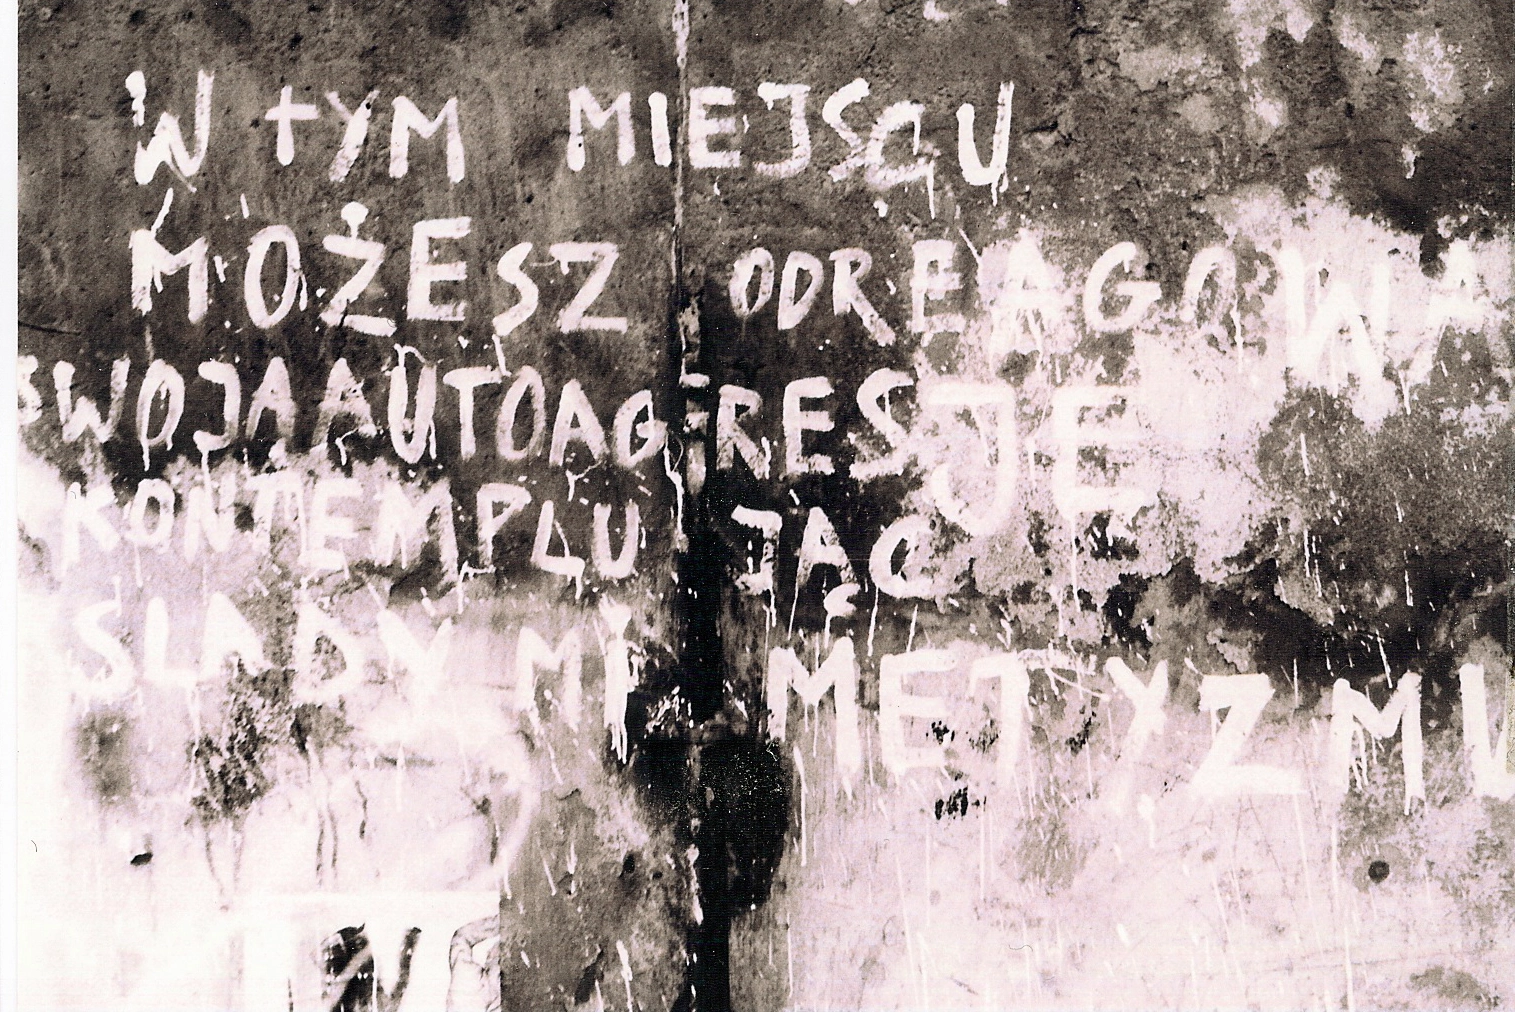 W TYM MIEJSCU
MOŻESZ ODREAGOWA
SWOJA AUTOAGRESJE
KONTEMPLUJĄC
SLADY MIMETYZMU